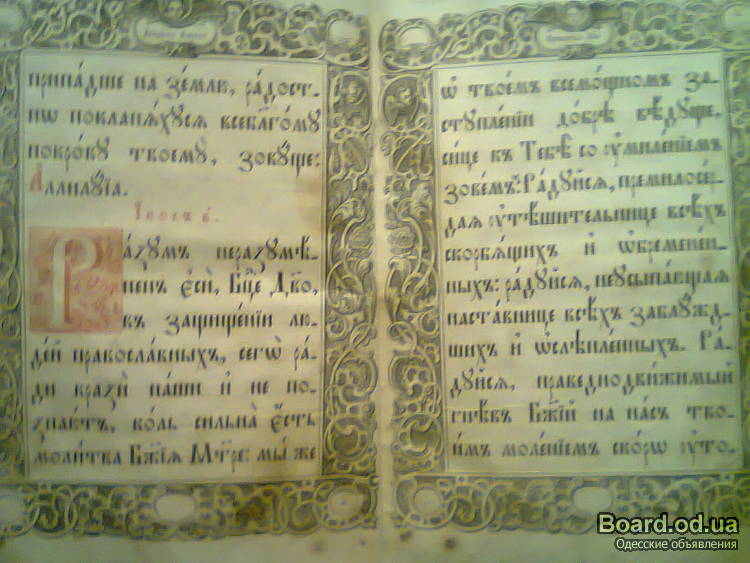 припа́дше на зе́млю, ра́дост-
нѡ покланѧ́хусѧ всебл҃го́му
покро́ву твоему̀, зову́ще:
Аллилу́їа.
Їкосъ в҃.
Ра́зумъ неразумѣ́-
ненъ є҆сѝ, Бц҃е Дв҃о,
въ защище́нїи лю-
де́й правосла́вныхъ, сегѡ̀ ра́-
ди вразѝ на́ши и҆ не по-
зна́ютъ, ко́ль сильна̀ є҆́сть
моли́тва Бж҃їѧ Мт҃ре: мы́ же
ѡ҆ твое́мъ всемо́щномъ за-
ступле́нїи до́брѣ вѣ́дуще,
си́це къ Тебѣ̀ со ѹ҆миле́нїемъ
зове́мъ: Ра́дуйсѧ, премилосе́р-
даѧ ѹ҆тѣ́шительнице всѣ́хъ
скорбѧ́щихъ и҆ ѡ҆бремене́н-
ныхъ: ра́дуйсѧ, неусыпа́ющаѧ
наста́внице всѣ́хъ заблу́жд-
шихъ и҆ ѡ҆слѣпле́нныхъ. Ра́-
дуйсѧ, праведнодви́жимый
гнѣ́въ Бж҃їй на на́съ тво-
и́мъ моле́нїемъ ско́рѡ ѹ҆то-
Board.od.ua
Одесские объявления